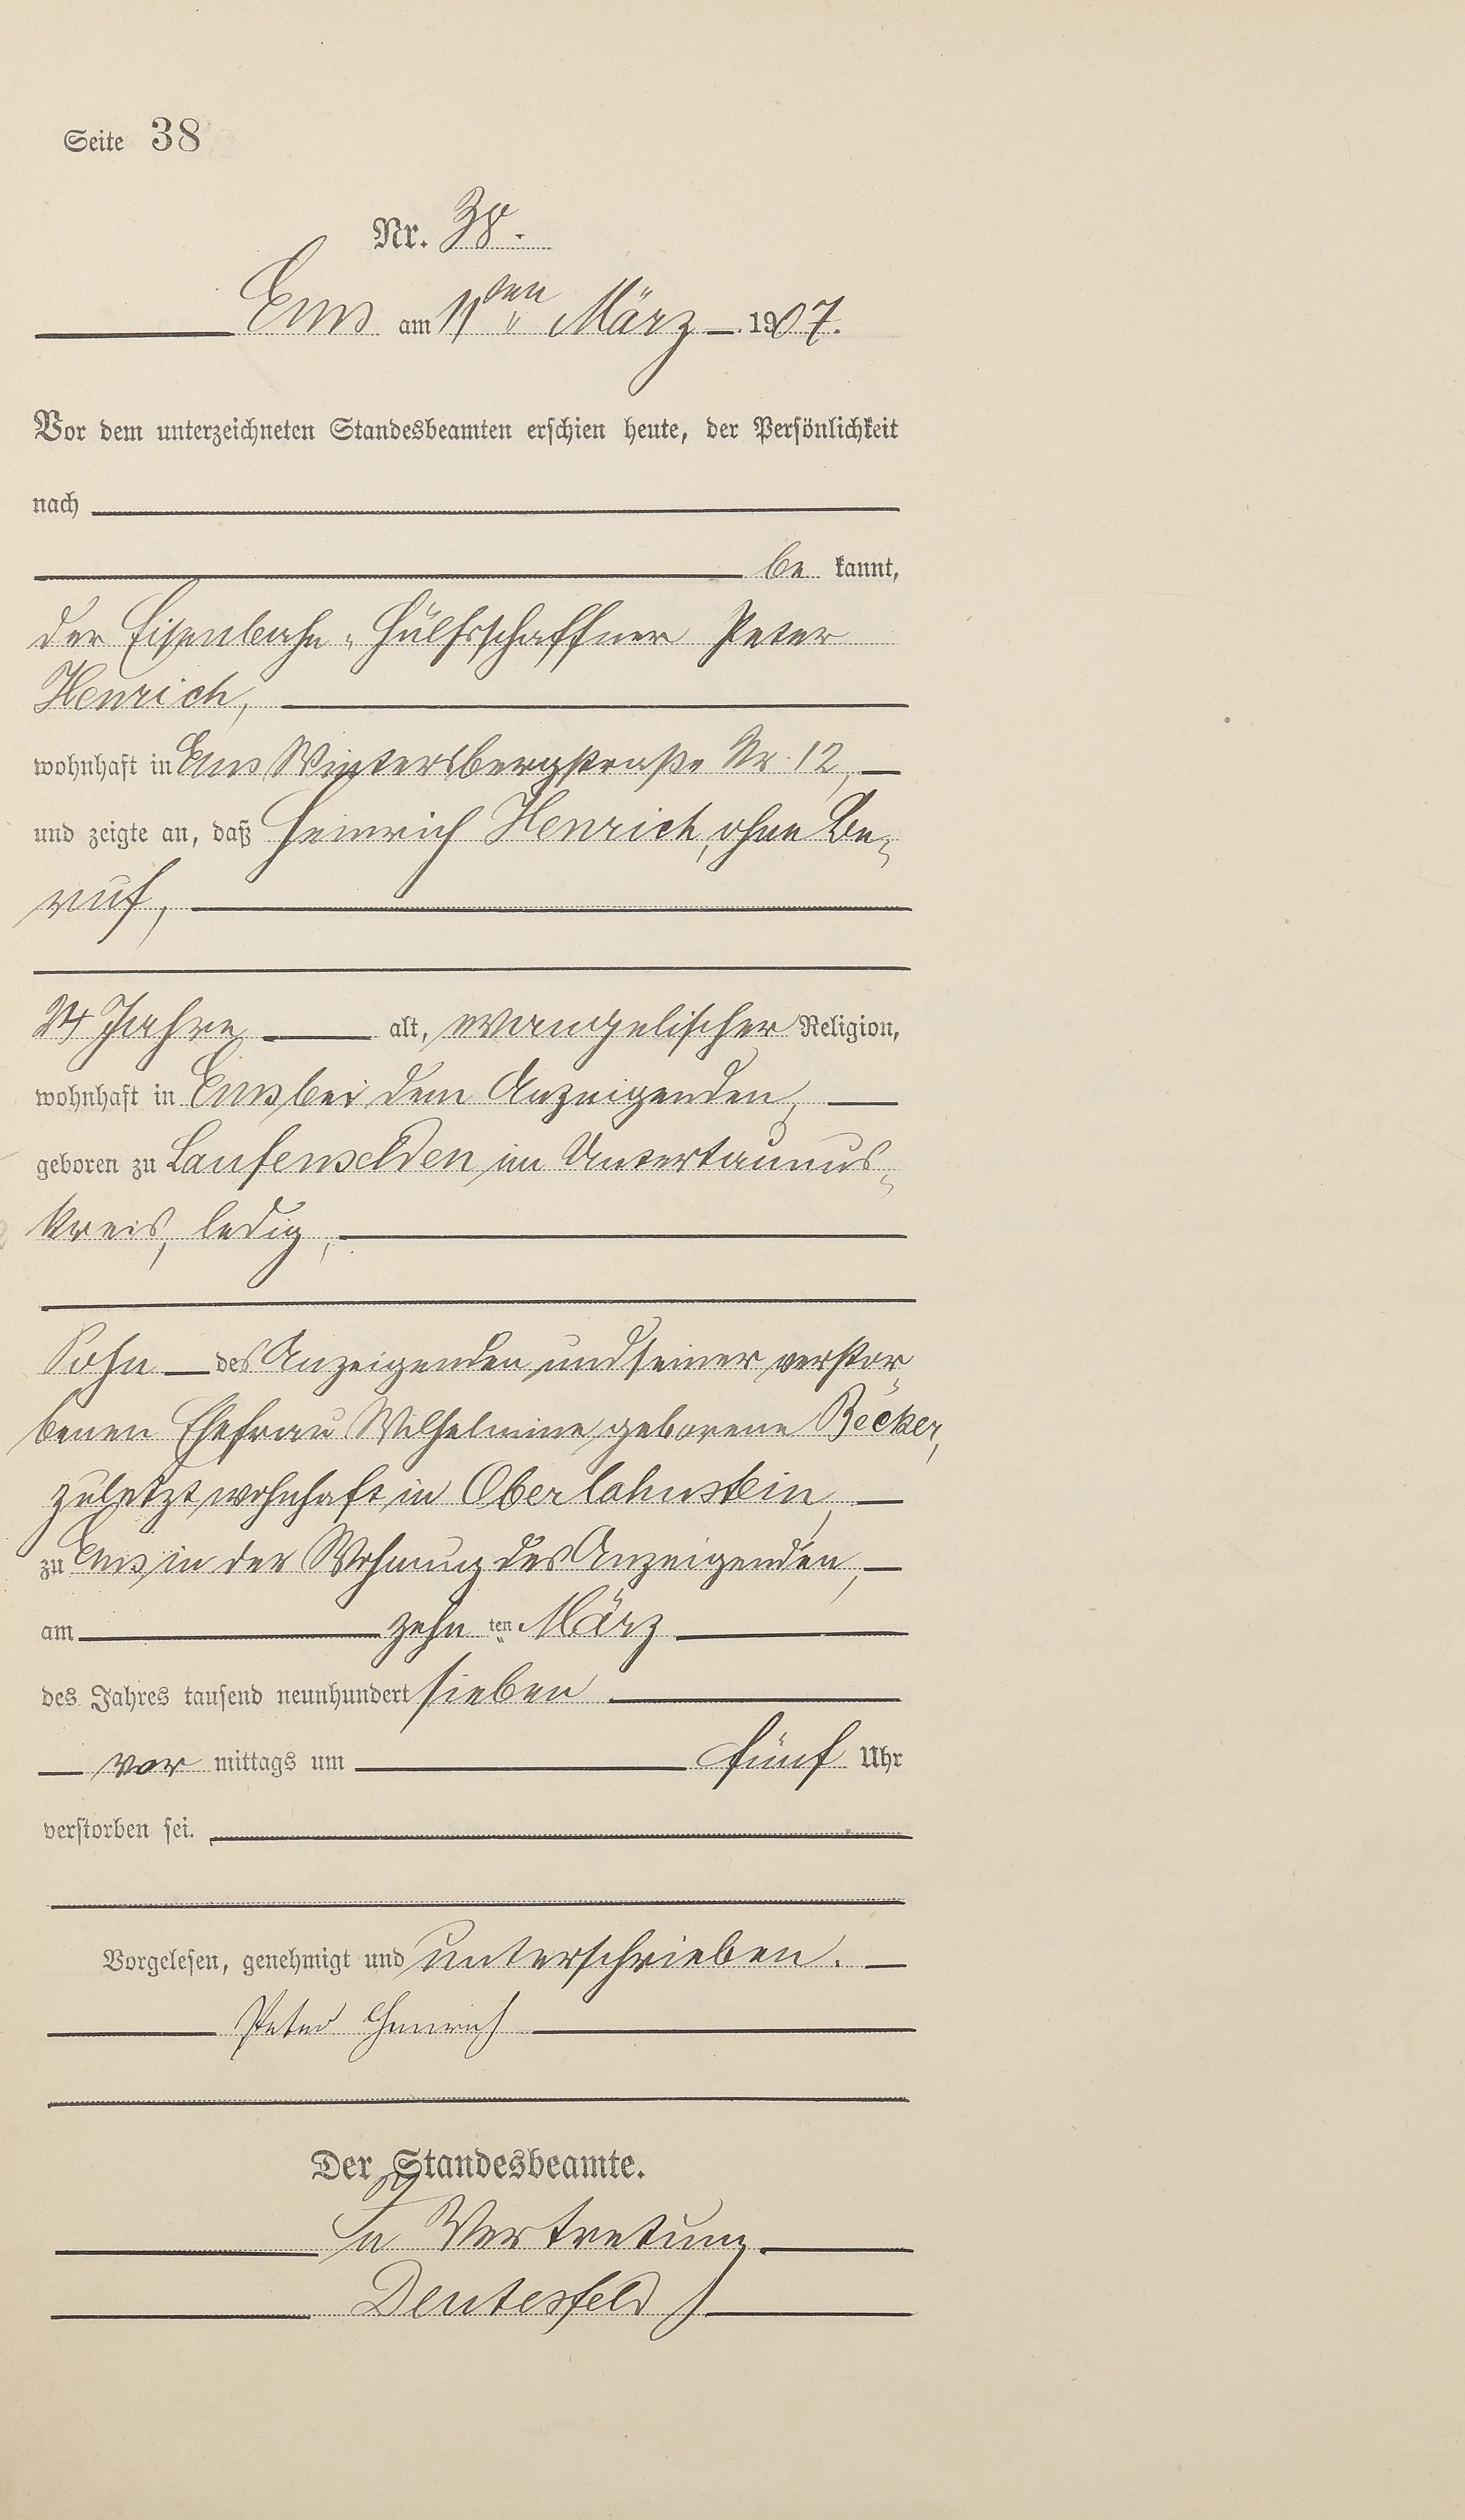 Seite 38
Nr. 38.
Ems am 11ten März 1907.
Vor dem unterzeichneten Standesbeamten erschien heute, der Persönlichkeit
nach
be kannt,
der Eisenbahn-Hülfsschaffner Peter
Henrich,
wohnhaft in Ems Wintersbergstraße Nr. 12,
und zeigte an, daß Heinrich Henrich, ohne Be-
ruf,
24 Jahre alt, evangelischer Religion,
wohnhaft in Ems bei dem Anzeigenden,
geboren zu Laufenselden im Untertaunus-
kreis, ledig,
Sohn des Anzeigenden und seiner verstor-
benen Ehefrau Wilhelmine geborene Becker,
zuletzt wohnhaft in Oberlahnstein,
zu Ems in der Wohnung des Anzeigenden,
am zehn ten März
des Jahres tausend neunhundert sieben
vor mittags um fünf Uhr
verstorben sei.
Vorgelesen, genehmigt und unterschrieben.
Peter Henrich
Der Standesbeamte.
In Vertretung
Deutesfeld